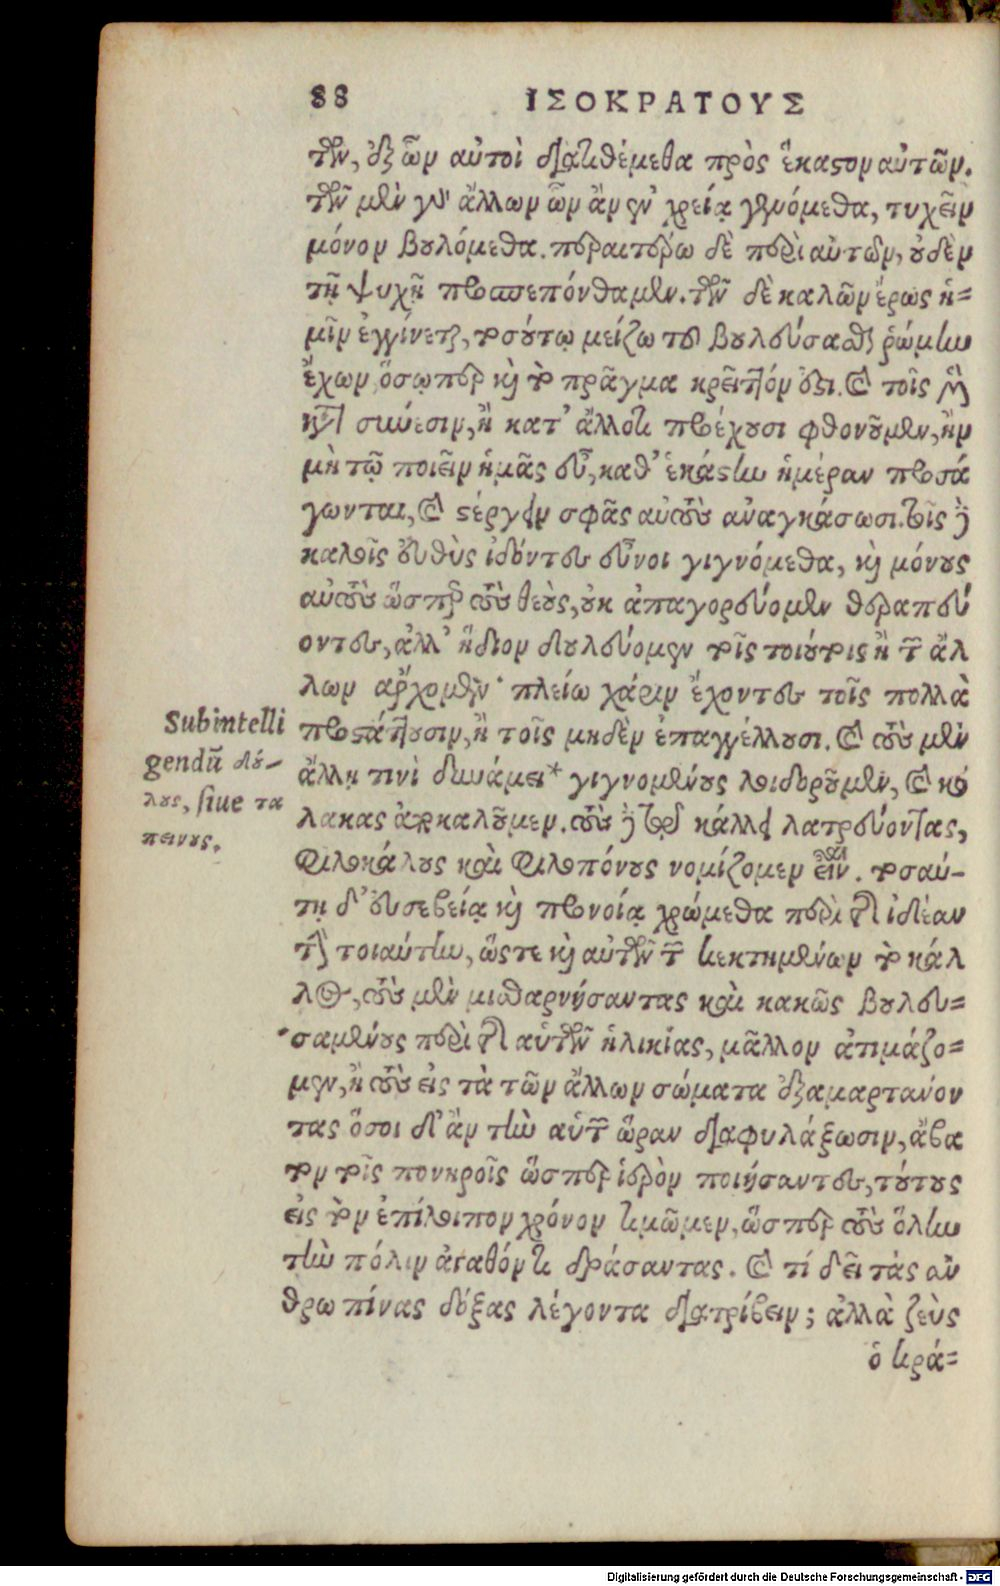 88 ΙΣΟΚΡΑΤΟΥΣ
των, ἐξ ὧν αὐτοὶ διατιθέμεθα πρὸς ἕκαστον αὐτῶν.
τῶν μὲν γὰρ ἄλλων ὧν ἂν ἐν χρείᾳ γενόμεθα, τυχεῖν
μόνον βουλόμεθα. περαιτέρω δὲ περὶ αὐτῶν, οὐδὲν
τῇ ψυχῇ προσπεπόνθαμεν. τῶν δὲ καλῶν ἔρως ἡ=
μῖν ἐγγίνεται, τοσούτῳ μείζω τοῦ βουλεύσασθαι ῥώμην
ἔχων, ὅσῳπερ καὶ τὸ πρᾶγμα κρεῖττόν ἐστι. καὶ τοῖς μὲν
κατὰ σύνεσιν, ἢ κατ' ἄλλο τι προέχουσι φθονοῦμεν, ἢν
μὴ τῷ ποιεῖν ἡμᾶς εὖ, καθ' ἑκάστην ἡμέραν προσά
γωνται, καὶ στέργειν σφᾶς αὐτοὺς ἀναγκάσωσι. τοῖς δὲ
καλοῖς εὐθὺς ἰδόντες εὖνοι γιγνόμεθα, καὶ μόνους
αὐτοὺς ὥσπερ τοὺς θεοὺς, οὐκ ἀπαγορεύομεν θεραπεύ
οντες, ἀλλ' ἥδιον δουλεύομεν τοῖς τοιούτοις ἢ τῶν ἄλ
λων ἄρχομεν· πλείω χάριν ἔχοντες τοῖς πολλὰ
προστάττουσιν, ἢ τοῖς μηδὲν ἐπαγγέλλουσι. καὶ τοὺς μὲν
Subintelli
gendū δού-
λους, siue τα
πεινους.
ἄλλῃ τινὶ δυνάμει* γιγνομένους λοιδοροῦμεν, καὶ κό
λακας ἀποκαλοῦμεν. τοὺς δὲ τῷ κάλλει λατρεύοντας,
φιλοκάλους καὶ φιλοπόνους νομίζομεν εἶναι. τοσαύ-
τῃ δ' εὐσεβείᾳ καὶ προνοίᾳ χρώμεθα περὶ τὴν ἰδέαν
τὴν τοιαύτην, ὥστε καὶ αὐτῶν τῶν κεκτημένων τὸ κάλ
λος, τοὺς μὲν μισθαρνήσαντας καὶ κακῶς βουλευ=
σαμένους περὶ τῆς αὑτῶν ἡλικίας, μᾶλλον ἀτιμάζο=
μεν, ἢ τοὺς εἰς τὰ τῶν ἄλλων σώματα ἐξαμαρτανόν
τας ὅσοι δ' ἂν τὴν αὑτῶν ὥραν διαφυλάξωσιν, ἄβα
τον τοῖς πονηροῖς ὥσπερ ἱερὸν ποιήσαντες, τούτους
εἰς τὸν ἐπίλοιπον χρόνον τιμῶμεν, ὥσπερ τοὺς ὅλην
τὴν πόλιν ἀγαθόν τι δράσαντας. καὶ τί δεῖ τὰς ἀν
θρωπίνας δόξας λέγοντα διατρίβειν; ἀλλὰ ζεὺς
ὁ κρά=
Digitalisierung gefördert durch die Deutsche Forschungsgemeinschaft - DFG